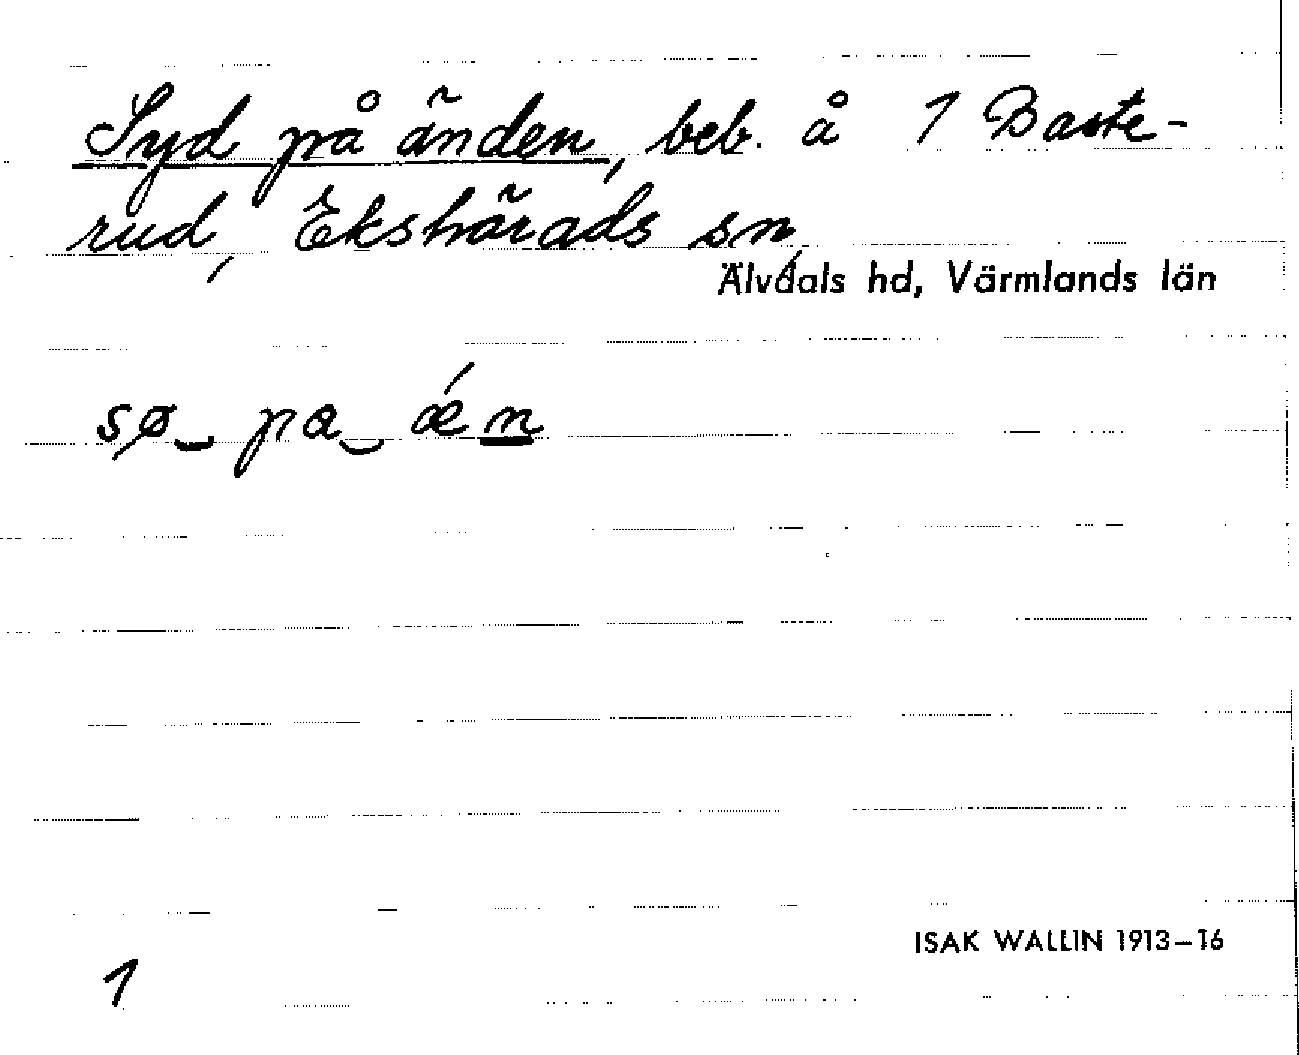 Syd på änden, beb. å 1 Baste-
rud, Ekshärads sn,
Älvdals hd, Värmlands län
sø‿ pa‿ ǽn
ISAK WALLIN 1913–16
1